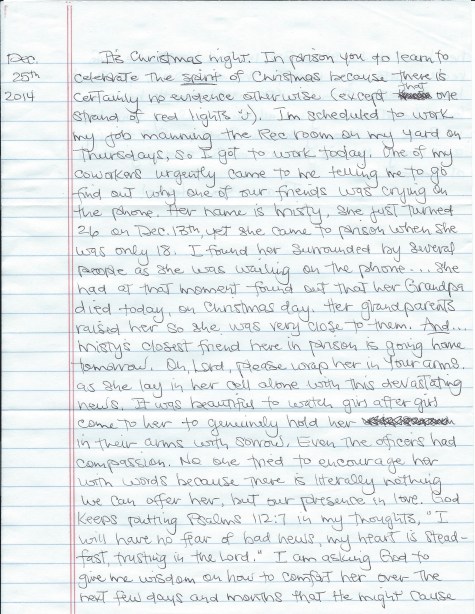 Dec. 25th 2014
It's Christmas night. In prison you to learn to
celebrate the spirit of Christmas because there is
certainly no evidence otherwise (except that one
strand of red lights ü). I'm scheduled to work
my job manning the Rec room on my yard on
Thursdays, so I got to work today. One of my
coworkers urgently came to me telling me to go
find out why one of our friends was crying on
the phone. Her name is Kristy, she just turned
26 on Dec. 13th, yet she came to prison when she
was only 18. I found her surrounded by several
people as she was wailing on the phone.... She
had at that moment found out that her Grandpa
died today, on Christmas day. Her grandparents
raised her so she was very close to them. And...
Kristy's closest friend here in prison is going home
tomorrow. Oh Lord, please wrap her in Your arms.
as she lay in her cell alone with this devastating
news. It was beautiful to watch girl after girl
come to her to genuinely hold her
in their arms with sorrow. Even the officers had
compassion. No one tried to encourage her
with words because there is literally nothing
we can offer her, but our presence in love. God
keeps putting Psalms 112:7 in my thoughts, "I
will have no fear of bad news, my heart is stead-
fast, trusting in the Lord." I am asking God to
give me wisdom on how to comfort her over the
next few days and months that He might cause